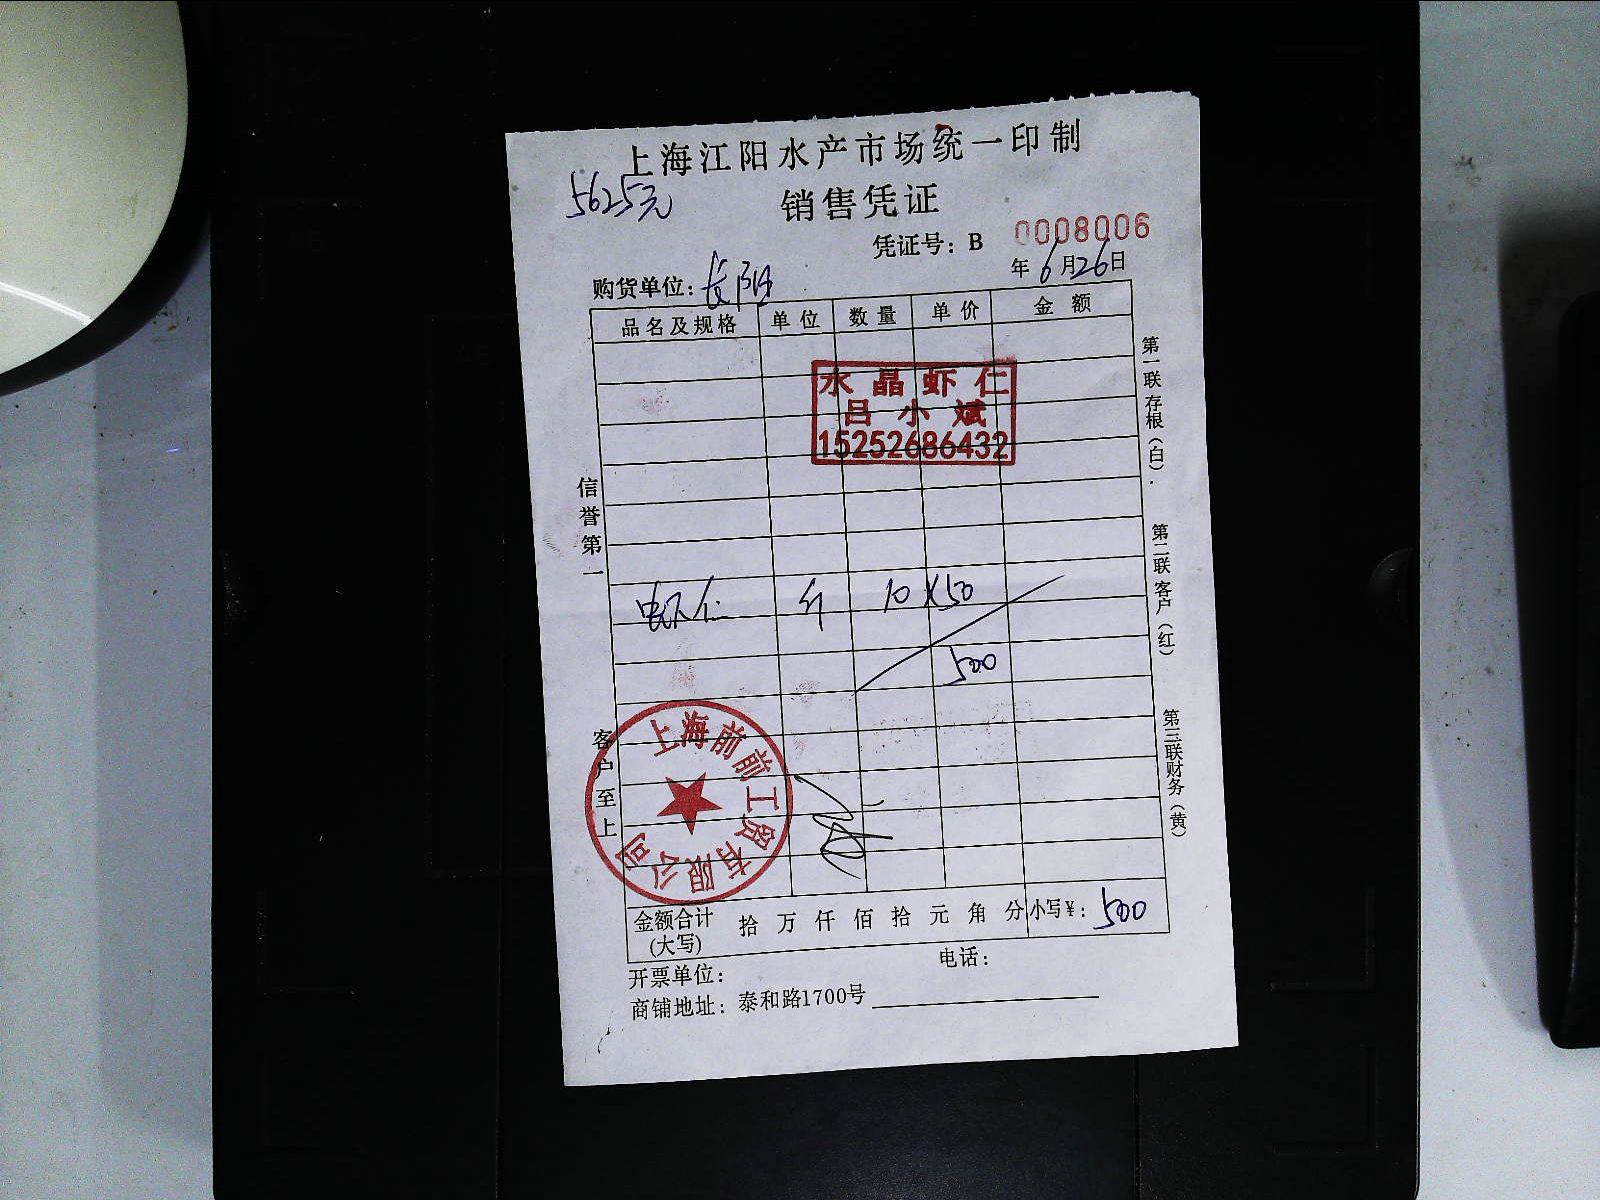 上海江阳水产市场统一印制
5625元
销售凭证
凭证号：B 0008006
年6月26日
购货单位：长阳
品名及规格 单位 数量 单价 金额
水晶虾仁
吕小斌
15252686432
虾仁 斤 10 X50
500
信誉第一
客户至上
第一联存根（白）.
第二联客户（红）
第三联财务（黄）
上海前前工贸有限公司
金额合计(大写) 拾 万 仟 佰 拾 元 角 分 小写¥：500
开票单位： 电话：
商铺地址：泰和路1700号